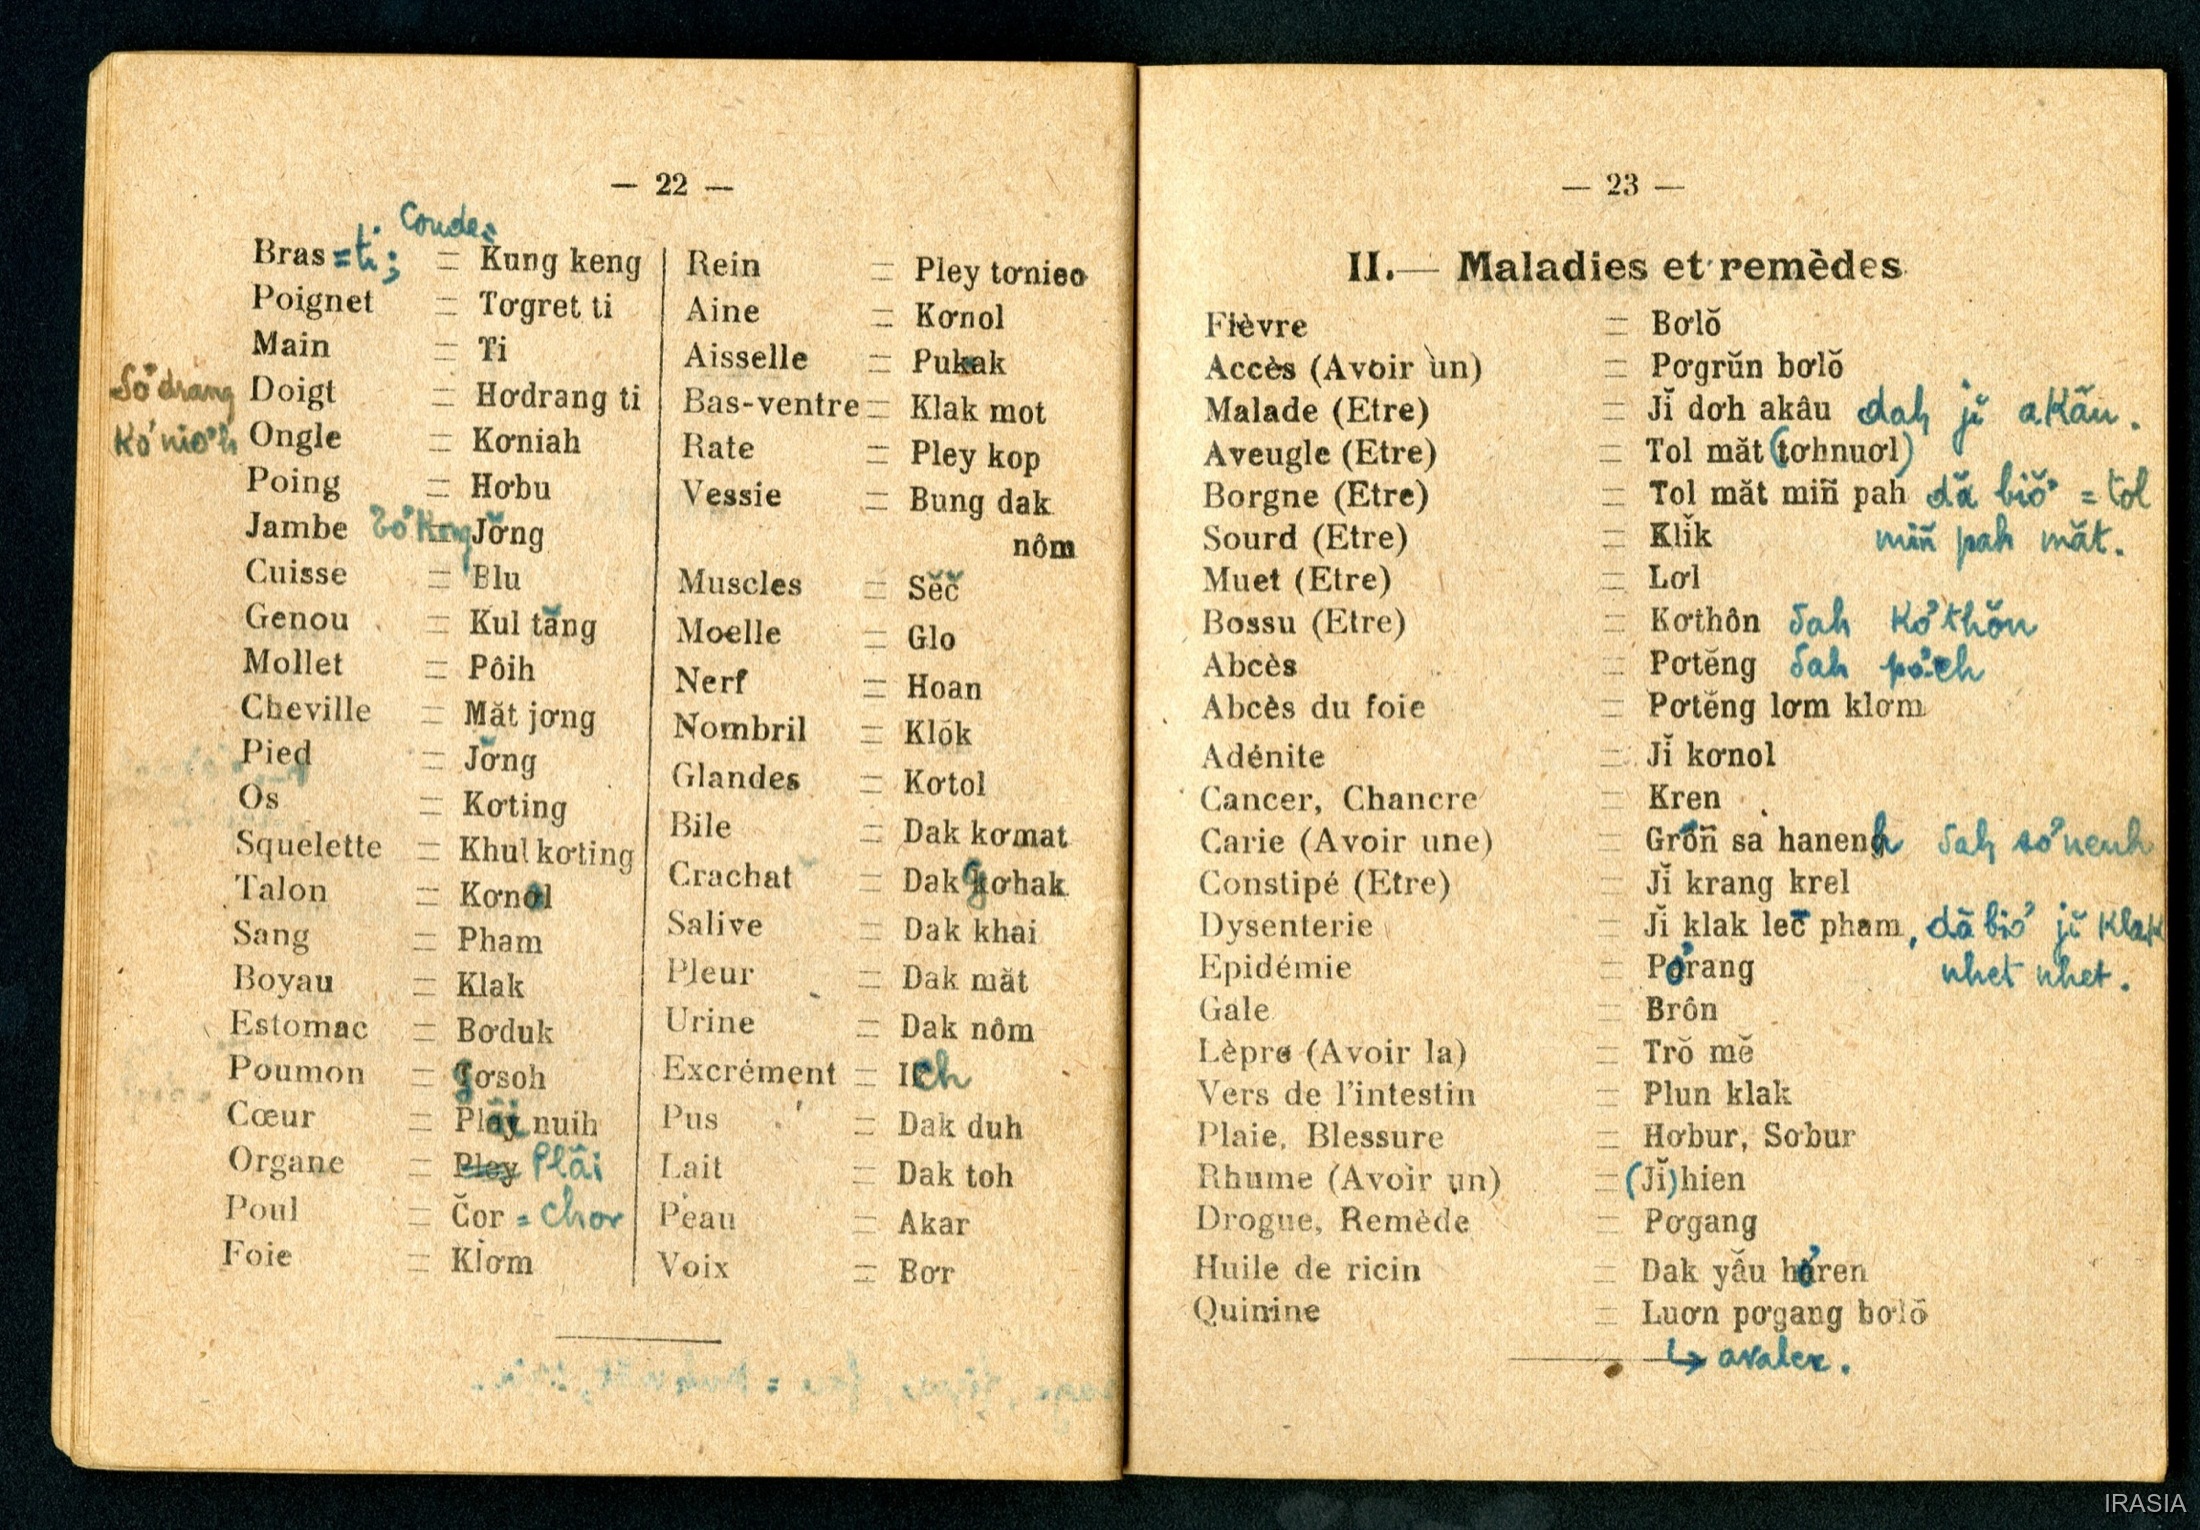 — 22 —
Coude:
Bras = ti; = Kung keng
Poignet = Tơgret ti
Main = Ti
Sơ̆drang Doigt = Hơdrang ti
Kơ'niơ'h Ongle = Kơniah
Poing = Hơbu
Jambe = Jơ̆ng
Cuisse = Blu
Genou = Kul tăng
Mollet = Pôih
Cheville = Măt jơng
Pied = Jơ̆ng
Os = Kơting
Squelette = Khul kơting
Talon = Kơnol
Sang = Pham
Boyau = Klak
Estomac = Bơduk
Poumon = gơsoh
Cœur = Plâi nuih
Organe = Pley Plâi
Poul = Čor = chor
Foie = Klơm
Rein = Pley tơnieo
Aine = Kơnol
Aisselle = Pukak
Bas-ventre = Klak mot
Rate = Pley kop
Vessie = Bung dak
nôm
Muscles = Sĕč
Moelle = Glo
Nerf = Hoan
Nombril = Klŏk
Glandes = Kơtol
Bile = Dak kơmat
Crachat = Dak gơhak
Salive = Dak khai
Pleur = Dak măt
Urine = Dak nôm
Excrément = Ich
Pus = Dak duh
Lait = Dak toh
Peau = Akar
Voix = Bơr
— 23 —
II.— Maladies et remèdes
Fièvre = Bơlŏ
Accès (Avoir un) = Pơgrŭn bơlŏ
Malade (Etre) = Jĭ dơh akâu dah jĭ akâu.
Aveugle (Etre) = Tol măt (tơhnuơl)
Borgne (Etre) = Tol măt miñ pah dă biơ̆ = tol
Sourd (Etre) = Klĭk miñ pah măt.
Muet (Etre) = Lơl
Bossu (Etre) = Kơthôn dah kơ'thŏn
Abcès = Pơtĕng dah pơ'ch
Abcès du foie = Pơtĕng lơm klơm
Adénite = Jĭ kơnol
Cancer, Chancre = Kren
Carie (Avoir une) = Grŏñ sa hanenh dah sơ'nenh
Constipé (Etre) = Jĭ krang krel
Dysenterie = Jĭ klak leč pham, dă biơ' jĭ klak
Epidémie = Pơrang nhet nhet.
Gale = Brôn
Lèpre (Avoir la) = Trŏ mĕ
Vers de l'intestin = Plun klak
Plaie, Blessure = Hơbur, Sơbur
Rhume (Avoir un) = (Jĭ) hien
Drogue, Remède = Pơgang
Huile de ricin = Dak yâ̆u hơren
Quinine = Luơn pơgang bơlŏ
↳ avaler.
IRASIA